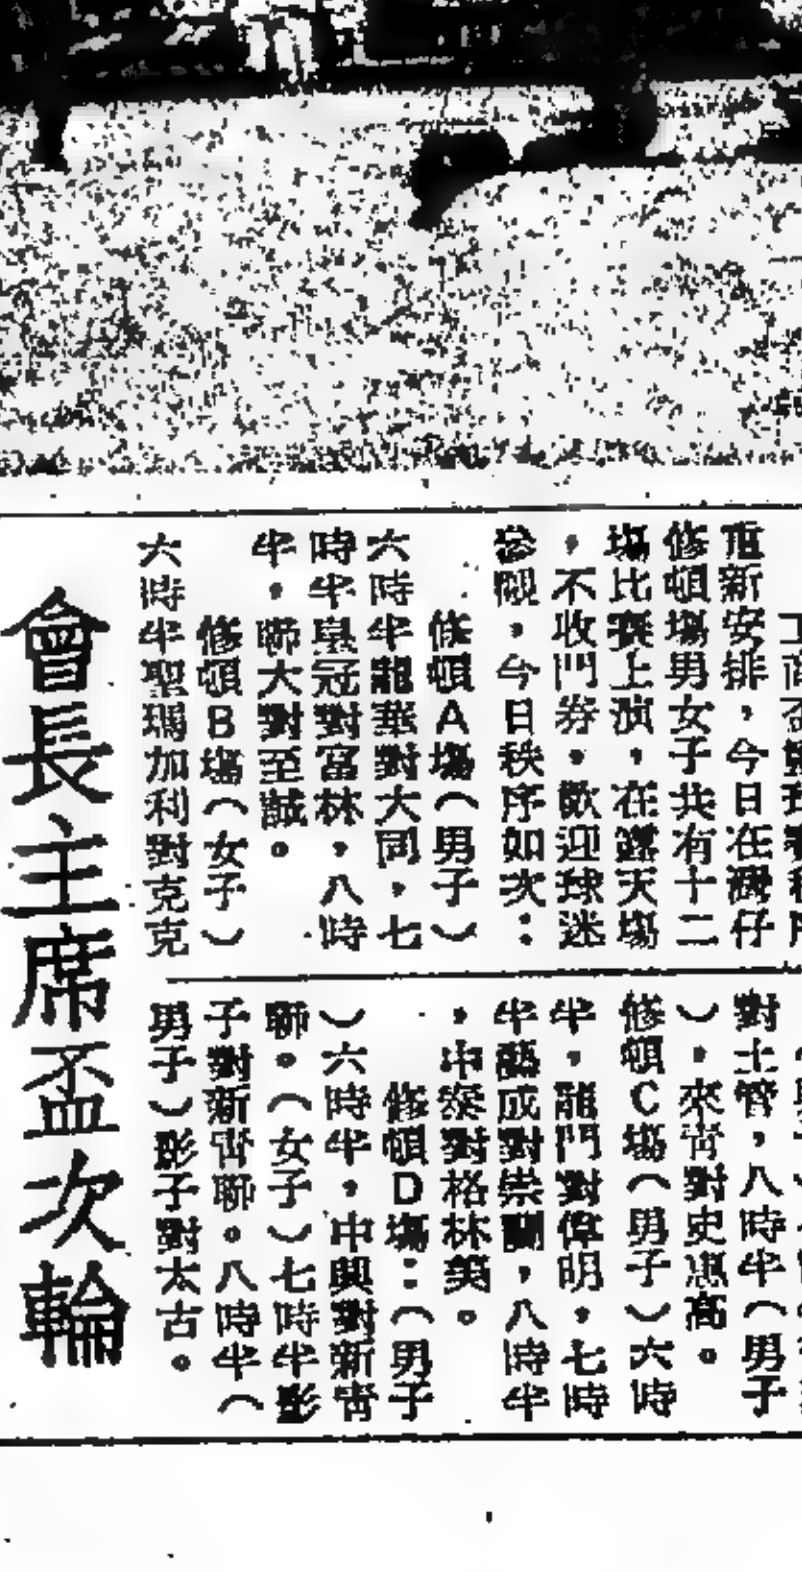 重新安排，今日在灣仔
修頓塲男女子共有十二
塲比賽上演，在露天塲
，不收門券。歡迎球迷
參觀，今日秩序如次：
修頓A塲（男子）
六時半龍華對大同，七
時半皇冠對富林，八時
半，聯大對至誠。
修頓B塲（女子）
六時半聖瑪加利對克克
對土管，八時半（男子
），來青對史惠高。
修頓C塲（男子）六時
半，龍門對偉明，七時
半藝成對崇蘭，八時半
，中泰對格林美。
修頓D塲：（男子
）六時半，中興對新青
聯。（女子）七時半影
子對新青聯。八時半（
男子）影子對太古。
會長主席盃次輪